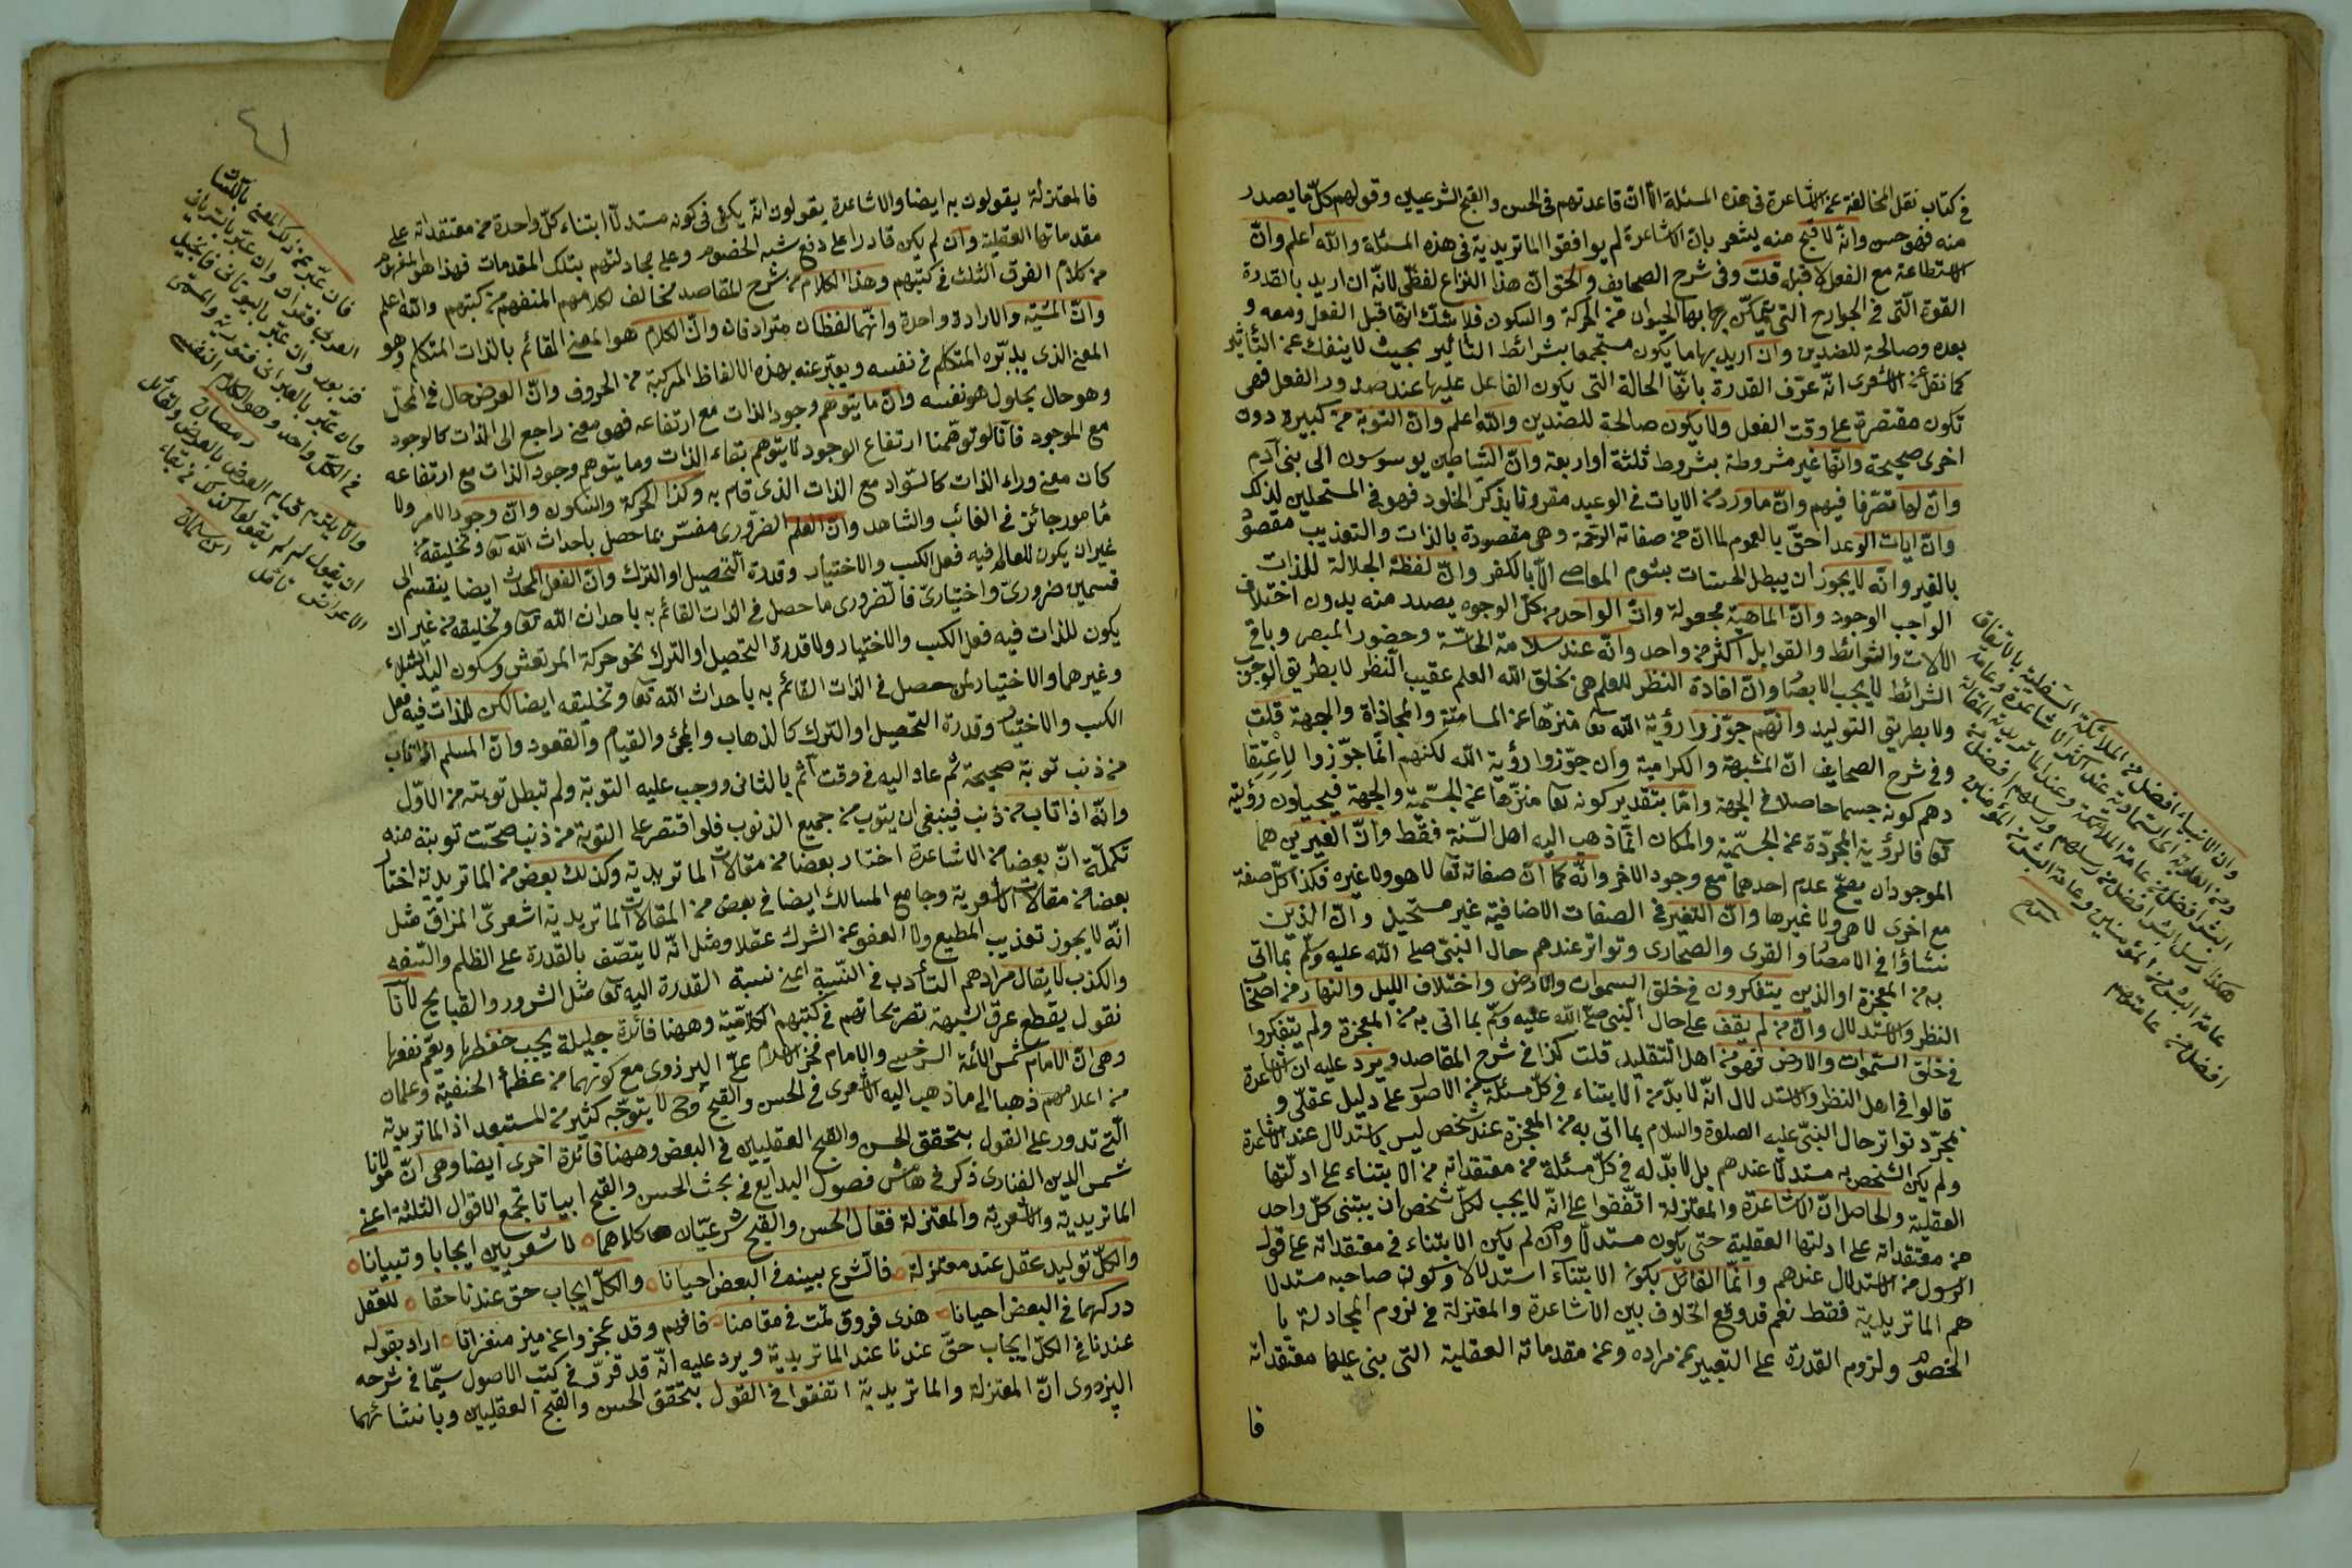 في كتاب نقل المخالفة عن الاشاعرة في هذه المسئلة الا ان قاعدتهم في الحسن والقبح الشرعيين وقولهم كل ما يصدر
منه فهو حسن وانه لا قبح منه يشعر بان الاشاعرة لم يوافقوا الماتريدية في هذه المسئلة والله اعلم وان
الاستطاعة مع الفعل لا قبله قلت وفي شرح الصحايف والحق ان هذا النزاع لفظي لانه ان اريد بالقدرة
القوة التي في الجوارح التي يتمكن بها الحيوان من الحركة والسكون فلا شك انها قبل الفعل ومعه و
بعده وصالحة للضدين وان اريد بها ما يكون مستجمعا بشرائط التأثير بحيث لا ينفك عن التأثير
كما نقل عن الاشعرى انه عرف القدرة بانها الحالة التي يكون الفاعل عليها عند صدور الفعل فهى
تكون مقتصرة على وقت الفعل ولا يكون صالحة للضدين والله اعلم وان التوبة من كبيرة دون
اخرى صحيحة وانها غير مشروطة بشروط ثلثة او اربعة وان الشياطين يوسوسون الى بنى آدم
وان لها تصرفا فيهم وان ما ورد من الايات في الوعيد مقرونا بذكر الخلود فهو في المستحلين لذلك
وان ايات الوعد احق بالعموم لما ان من صفاته الرحمة وهى مقصودة بالذات والتعذيب مقصود
بالغير وانه لا يجوز ان يبطل الحسنات بشوم المعاصى الا بالكفر وان لفظة الجلالة للذات
الواجب الوجود وان الماهية مجعولة وان الواحد من كل الوجوه يصدر منه بدون اختلاف
الآلات والشرائط والقوابل اكثر من واحد وانه عند سلامة الحاسة وحضور المبصر وباقي
الشرائط لا يجب الابصار وان افادة النظر للعلم هى بخلق الله العلم عقيب النظر لا بطريق الوجوب
ولا بطريق التوليد وانهم جوزوا رؤية الله تعالى منزها عن المسامتة والمحاذاة والجهة قلت
وفي شرح الصحايف ان المشبهة والكرامية وان جوزوا رؤية الله لكنهم انما جوزوا لاعتقا
دهم كونه جسما حاصلا في الجهة واما بتقدير كونه تعا منزها عن الجسمية والجهة فيحيلون رؤيته
تعا فالرؤية المجردة عن الجسمية والمكان انما ذهب اليه اهل السنة فقط وان الغيرين هما
الموجودان يصح عدم احدهما مع وجود الاخر وانه كما ان صفاته تعا لا هو ولا غيره فكذا كل صفة
مع اخرى لا هى ولا غيرها وان التغير في الصفات الاضافية غير مستحيل وان الذين
نشاؤا في الامصار والقرى والصحارى وتواتر عندهم حال النبى صلى الله عليه وسلم بما اتى
به من المعجزة او الذين يتفكرون في خلق السموات والارض واختلاف الليل والنهار من اصحاب
النظر والاستدلال وان من لم يقف على حال النبى صلى الله عليه وسلم بما اتى به من المعجزة ولم يتفكروا
في خلق السموات والارض فهو من اهل التقليد قلت كذا في شرح المقاصد ويرد عليه ان الاشاعرة
قالوا في اهل النظر والاستدلال انه لا بد من الابتناء في كل مسئلة من الاصول على دليل عقلى و
مجرد تواتر حال النبى عليه الصلوة والسلام بما اتى به من المعجزة عند شخص ليس باستدلال عند الاشاعرة
ولم يكن الشخص به مستدلا عندهم بل لا بد له في كل مسئلة من معتقداته من الابتناء على ادلتها
العقلية والحاصل ان الاشاعرة والمعتزلة اتفقوا على انه لا يجب لكل شخص ان يبتنى كل واحد
من معتقداته على ادلتها العقلية حتى يكون مستدلا وان لم يكن الابتناء في معتقداته على قول
الرسول من الاستدلال عندهم وانما القائل بكون الابتناء استدلالا وكون صاحبه مستدلا
هم الماتريدية فقط نعم قد وقع الخلاف بين الاشاعرة والمعتزلة في لزوم المجادلة با
الخصوم ولزوم القدرة على التعبير عن مراده وعن مقدماته العقلية التى بنى عليها معتقداته
فا
وان الانبياء افضل من الملائكة السفلية بالاتفاق
ومن العلوية اى السماوية عند اكثر الاشاعرة وعامة
البشر افضل من عامة الملائكة وعند الماتريدية
هكذا رسل البشر افضل من رسلهم ورسلهم افضل من
عامة البشر من المؤمنين وعامة البشر من المؤمنين
افضل من عامتهم
فالمعتزلة يقولون به ايضا والاشاعرة يقولون انه يكفى في كونه مستدلا ابتناء كل واحدة من معتقداته على
مقدماتها العقلية وان لم يكن قادرا على دفع شبه الخصوم وعلى مجادلتهم بتلك المقدمات فهذا هو المفهوم
من كلام الفرق الثلث في كتبهم وهذا الكلام من شرح المقاصد مخالف لكلامهم المنفهم من كتبهم والله اعلم
وان المشية والارادة واحدة وانهما لفظان مترادفان وان الكلام هو المعنى القائم بالذات المتكلم وهو
المعنى الذى يدبره المتكلم في نفسه ويعبر عنه بهذه الالفاظ المركبة من الحروف وان العرض حال في المحل
وهو حال بحلول هو نفسه وان ما يتوهم وجود الذات مع ارتفاعه فهو معنى راجع الى الذات كالوجود
مع الموجود فانا لو توهمنا ارتفاع الوجود لا يتوهم بقاء الذات وما يتوهم وجود الذات مع ارتفاعه
كان معنى وراء الذات كالسواد مع الذات الذى قام به وكذا الحركة والسكون وان وجود الامر ولا
مأمور جائز في الغائب والشاهد وان العلم الضرورى مفسر بما حصل باحداث الله تعا وتخليقه من
غير ان يكون للعالم فيه فعل الكسب والاختيار وقدرة التحصيل او الترك وان الفعل المحدث ايضا ينقسم الى
قسمين ضرورى واختيارى فالضرورى ما حصل في الذات القائم به باحداث الله تعا وتخليقه من غير ان
يكون للذات فيه فعل الكسب والاختيار ولا قدرة التحصيل او الترك نحو حركة المرتعش وسكون اليد الشلاء
وغيرهما والاختيارى حصل في الذات القائم به باحداث الله تعا وتخليقه ايضا لكن للذات فيه فعل
الكسب والاختيار وقدرة التحصيل او الترك كالذهاب والمجئ والقيام والقعود وان المسلم اذا تاب
من ذنب توبة صحيحة ثم عاد اليه في وقت اثم بالثانى ووجب عليه التوبة ولم تبطل توبته من الاول
وانه اذا تاب من ذنب فينبغى ان يتوب من جميع الذنوب فلو اقتصر على التوبة من ذنب صحت توبته منه
تكملة ان بعضا من الاشاعرة اختار بعضا من مقالات الماتريدية وكذلك بعض من الماتريدية اختار
بعضا من مقالات الاشعرية وجامع المسالك ايضا في بعض من المقالات الماتريدية اشعرى المزاق مثل
انه لا يجوز تعذيب المطيع ولا العفو عن الشرك عقلا ومثل انه لا يتصف بالقدرة على الظلم والسفه
والكذب لا يقال مرادهم التأدب في النسبة اعنى نسبة القدرة اليه تعا مثل الشرور والقبايح لانا
نقول يقطع عرق الشبهة تصريحاتهم في كتبهم الكلامية وههنا فائدة جليلة يجب حفظها ويعم نفعها
وهى ان الامام شمس الائمة السرخسى والامام فخر الاسلام على البزدوى مع كونهما من عظماء الحنفية وعلمان
من اعلامهم ذهبا الى ما ذهب اليه الاشعرى في الحسن والقبح وح لا يتوجه كثير من المستبعد اذ الماتريدية
التى تدور على القول بتحقق الحسن والقبح العقليين في البعض وههنا فائدة اخرى ايضا وهى ان مولانا
شمس الدين الفنارى ذكر في هامش فصول البدايع في بحث الحسن والقبح ابياتا تجمع الاقوال الثلثة اعنى
الماتريدية والاشعرية والمعتزلة فقال الحسن والقبح شرعيان كلاهما لاشعريين ايجابا وتبيانا
والكل توليد عقل عند معتزلة فالشرع يبينه في البعض احيانا والكل ايجاب حق عندنا حقا للعقل
دركهما في البعض احيانا هذى فروق نمت في مقامنا فافهم وقد عجزوا عن ميز منغزانا اراد بقوله
عندنا في الكل ايجاب حق عندنا عند الماتريدية ويرد عليه انه قد قرر في كتب الاصول سيما في شرحه
البزدوى ان المعتزلة والماتريدية اتفقوا في القول بتحقق الحسن والقبح العقليين وبانشائهما
فان عبر عن ذلك المعنى باللسان
العربى فقران وان عبر بالسريانى
فزبور وان عبر باليونانى فانجيل
وان عبر بالعبرانى فتورية والمسمى
في الكل واحد وهو الكلام النفسى
رمضان
والا يلزم قيام العرض بالعرض ولقائل
ان يقول لم لم تقولوا كذلك في بقاء
الاعراض تأمل